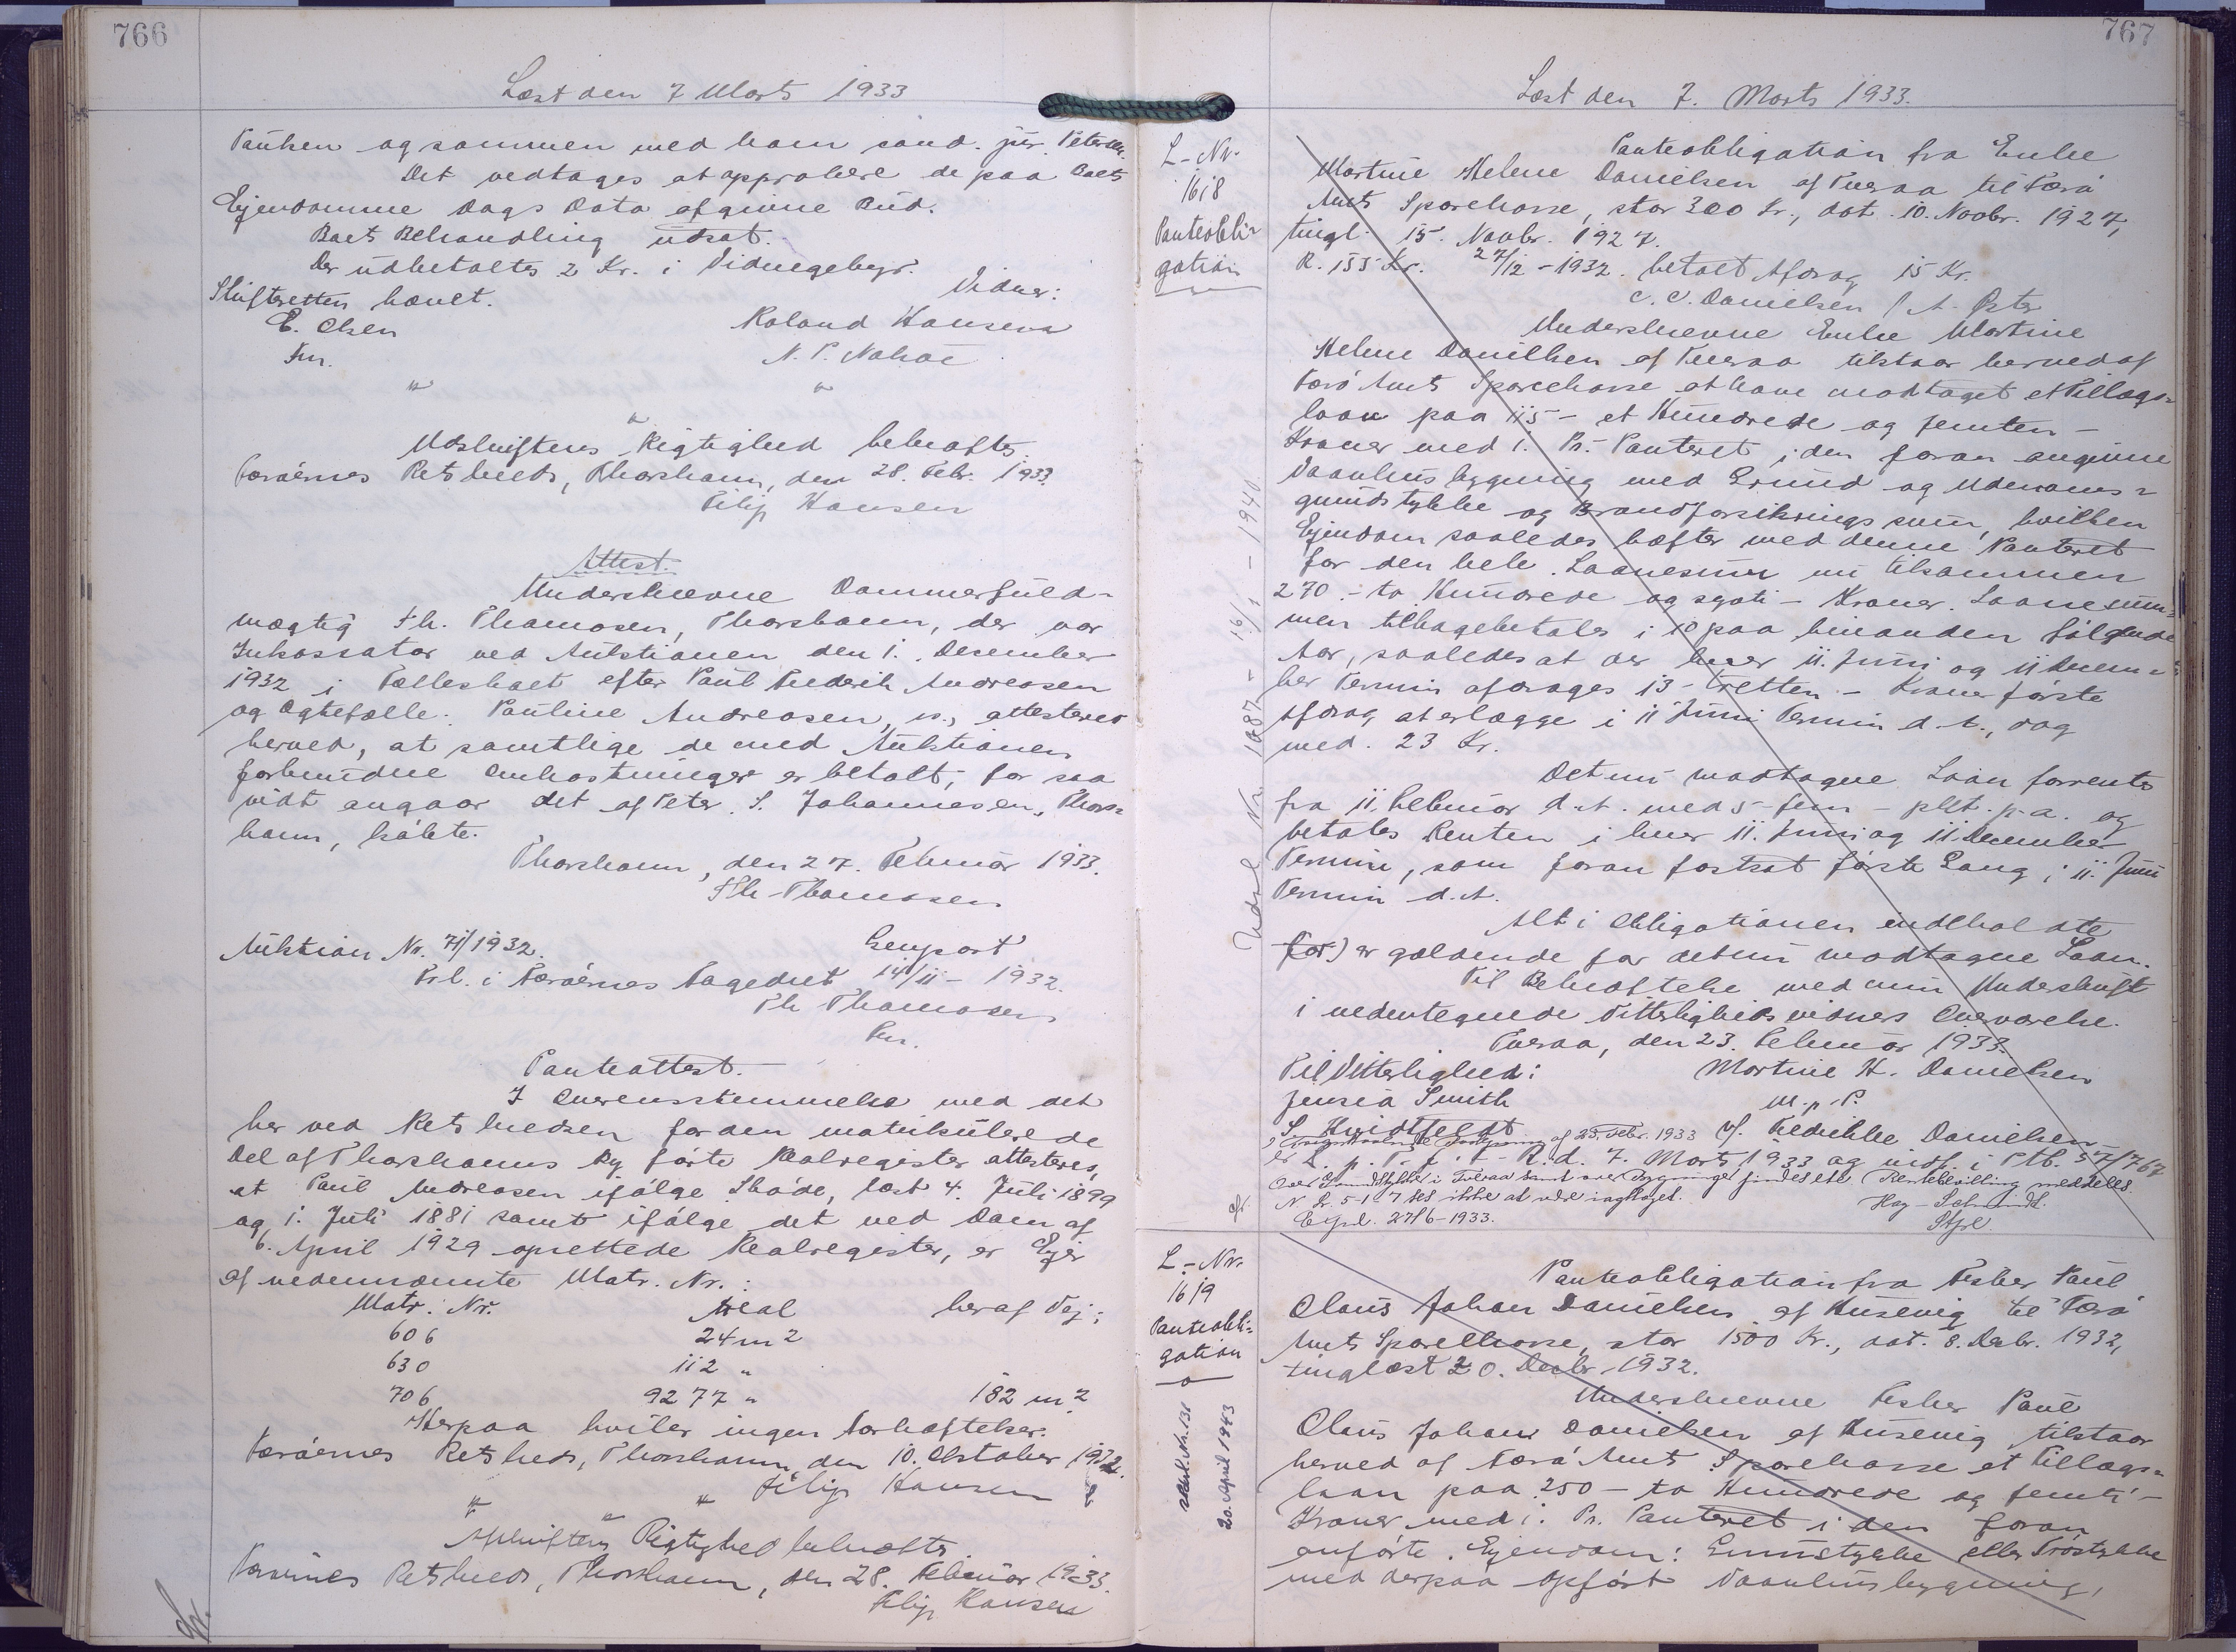 766
Læst den 7 Marts 1933
Paulsen og sammen med ham cand. jur. Petersen.
Det vedtages at approbere de paa Boets
Ejendomme Dags Dato afgivne Bud.
Boets Behandling udsat.
Der udbetaltes 2 Kr. i Vidnegebyr.
Skifteretten hævet.
Vidner:
E. Olsen
Roland Hansen
Fm.
N. P. Nolsøe
" "
"
Udskriftens Rigtighed bekræftes.
Færøernes Retskreds, Thorshavn, den 28. Febr. 1933.
Filip Hansen
Attest.
Underskrevne Dommerfuld-
mægtig Th. Thomasen, Thorshavn, der var
Inkassator ved Auktionen den 1. December
1932 i Fællesboet efter Paul Frederik Andreasen
og Ægtefælle Pauline Andreasen, attesteres
herved, at samtlige de med Auktionen
forbundne Omkostninger er betalt, for saa
vidt angaar det af Peter S. Johannesen, Thors-
havn, købte.
Thorshavn, den 27. Februar 1933.
Th Thomasen
Auktion Nr. 71/1932. Genpart
Frl. i Færøernes Tagedret 14/11 - 1932.
Th Thomasen
Fm.
Panteattest.
I Overensstemmelse med det
her ved Retskredsen for den matrikulerede
Del af Thorshavns By førte Realregister attesteres,
at Paul Andreasen ifølge Skøde, læst 4. Juli 1899
og 1. Juli 1881 samt ifølge det ved Dom af
6. April 1929 oprettede Realregister, er Ejer
af nedennævnte Matr. Nr.:
Matr. Nr. Areal heraf Vej:
606 24 m2
630 112 "
706 9277 " 182 m2
Herpaa hviler ingen Forhæftelser.
Færøernes Retskreds, Thorshavn den 10. Oktober 1932.
Filip Hansen
" " "
Afskriftens Rigtighed bekræftes
Færøernes Retskreds, Thorshavn, den 28. Februar 1933.
Filip Hansen
767
Læst den 7. Marts 1933.
L-Nr.
1618
Panteobli-
gation
Panteobligation fra Enke
Martine Helene Danielsen af Tveraa til Færø
Amts Sparekasse, stor 300 Kr., dat. 10. Novbr. 1927,
tingl. 15. Novbr. 1927.
R. 155 Kr. 27/12 - 1932. betalt Afdrag 15 Kr.
C. C. Danielsen / A. Øster
Underskrevne Enke Martine
Helene Danielsen af Tveraa tilstaar herved af
Færø Amts Sparekasse at have modtaget et Tillægs-
laan paa 115 - et Hundrede og femten -
Kroner med 1. Pr. Panteret i den foran angivne
Vaanhusbygning med Grund og Udenoms-
grundstykke og Brandforsikringssum, hvilken
Ejendom saaledes hæfter med denne Panteret
for den hele Laanesum nu tilsammen
270 - to Hundrede og syvti - Kroner. Laanesum-
men tilbagebetales i 10 paa hinanden følgende
Aar, saaledes at der hver 11. Juni og 11 Decem-
ber Termin afdrages 13 - tretten - Kroner første
Afdrag at erlægge i 11 Juni Termin d. A., dog
med 23 Kr.
Det nu modtagne Laan forrentes
fra 11. Februar d. A. med 5 - fem - pCt. p. a. og
betales Renten i hver 11. Juni og 11 December
Termin, som foran fastsat første Gang i 11. Juni
Termin d. A.
Alt i Obligationen indeholdte
for) er gældende for det nu modtagne Laan.
Til Bekræftelse med min Underskrift
i nedentegnede Vitterlighedsvidners Overværelse.
Tveraa, den 23. Februar 1933.
Til Vitterlighed: Martine H. Danielsen
Jensia Smith m. p. P.
S. Kvidtfeldt v/. Fredrikke Danielsen
af 25. Febr. 1933
er L. p. T. f. F. R. d. 7. Marts 1933 og indf. i Ptb. 57/767
Over Grundstykker i Tveraa samt over Bygninger findes ett. Rentebevilling meddelt
N L. 5-1 7 ses ikke at være iagttaget.
E. Gul. 27/6-1933. Hay-Schmidt.
Stful.
Udsl Nr. 1087 - 16/1 - 1940
L.-Nr.
1619
Panteobli-
gation
Udsl. Nr. 131
20. April 1943
Panteobligation fra Fisker Paul
Olaus Johan Danielsen af Husevig til Færø
Amts Sparekasse, stor 1500 Kr., dat. 8. Decbr. 1932,
tinglæst 20. Decbr. 1932.
Underskrevne Fisker Paul
Olaus Johan Danielsen af Husevig tilstaar
herved af Færø Amts Sparekasse et Tillægs-
laan paa 250 - to Hundrede og femti -
Kroner med 1. Pr. Panteret i den foran
anførte Ejendom: Grundstykke eller Trøstykke
med derpaa opført Vaanhusbygning,